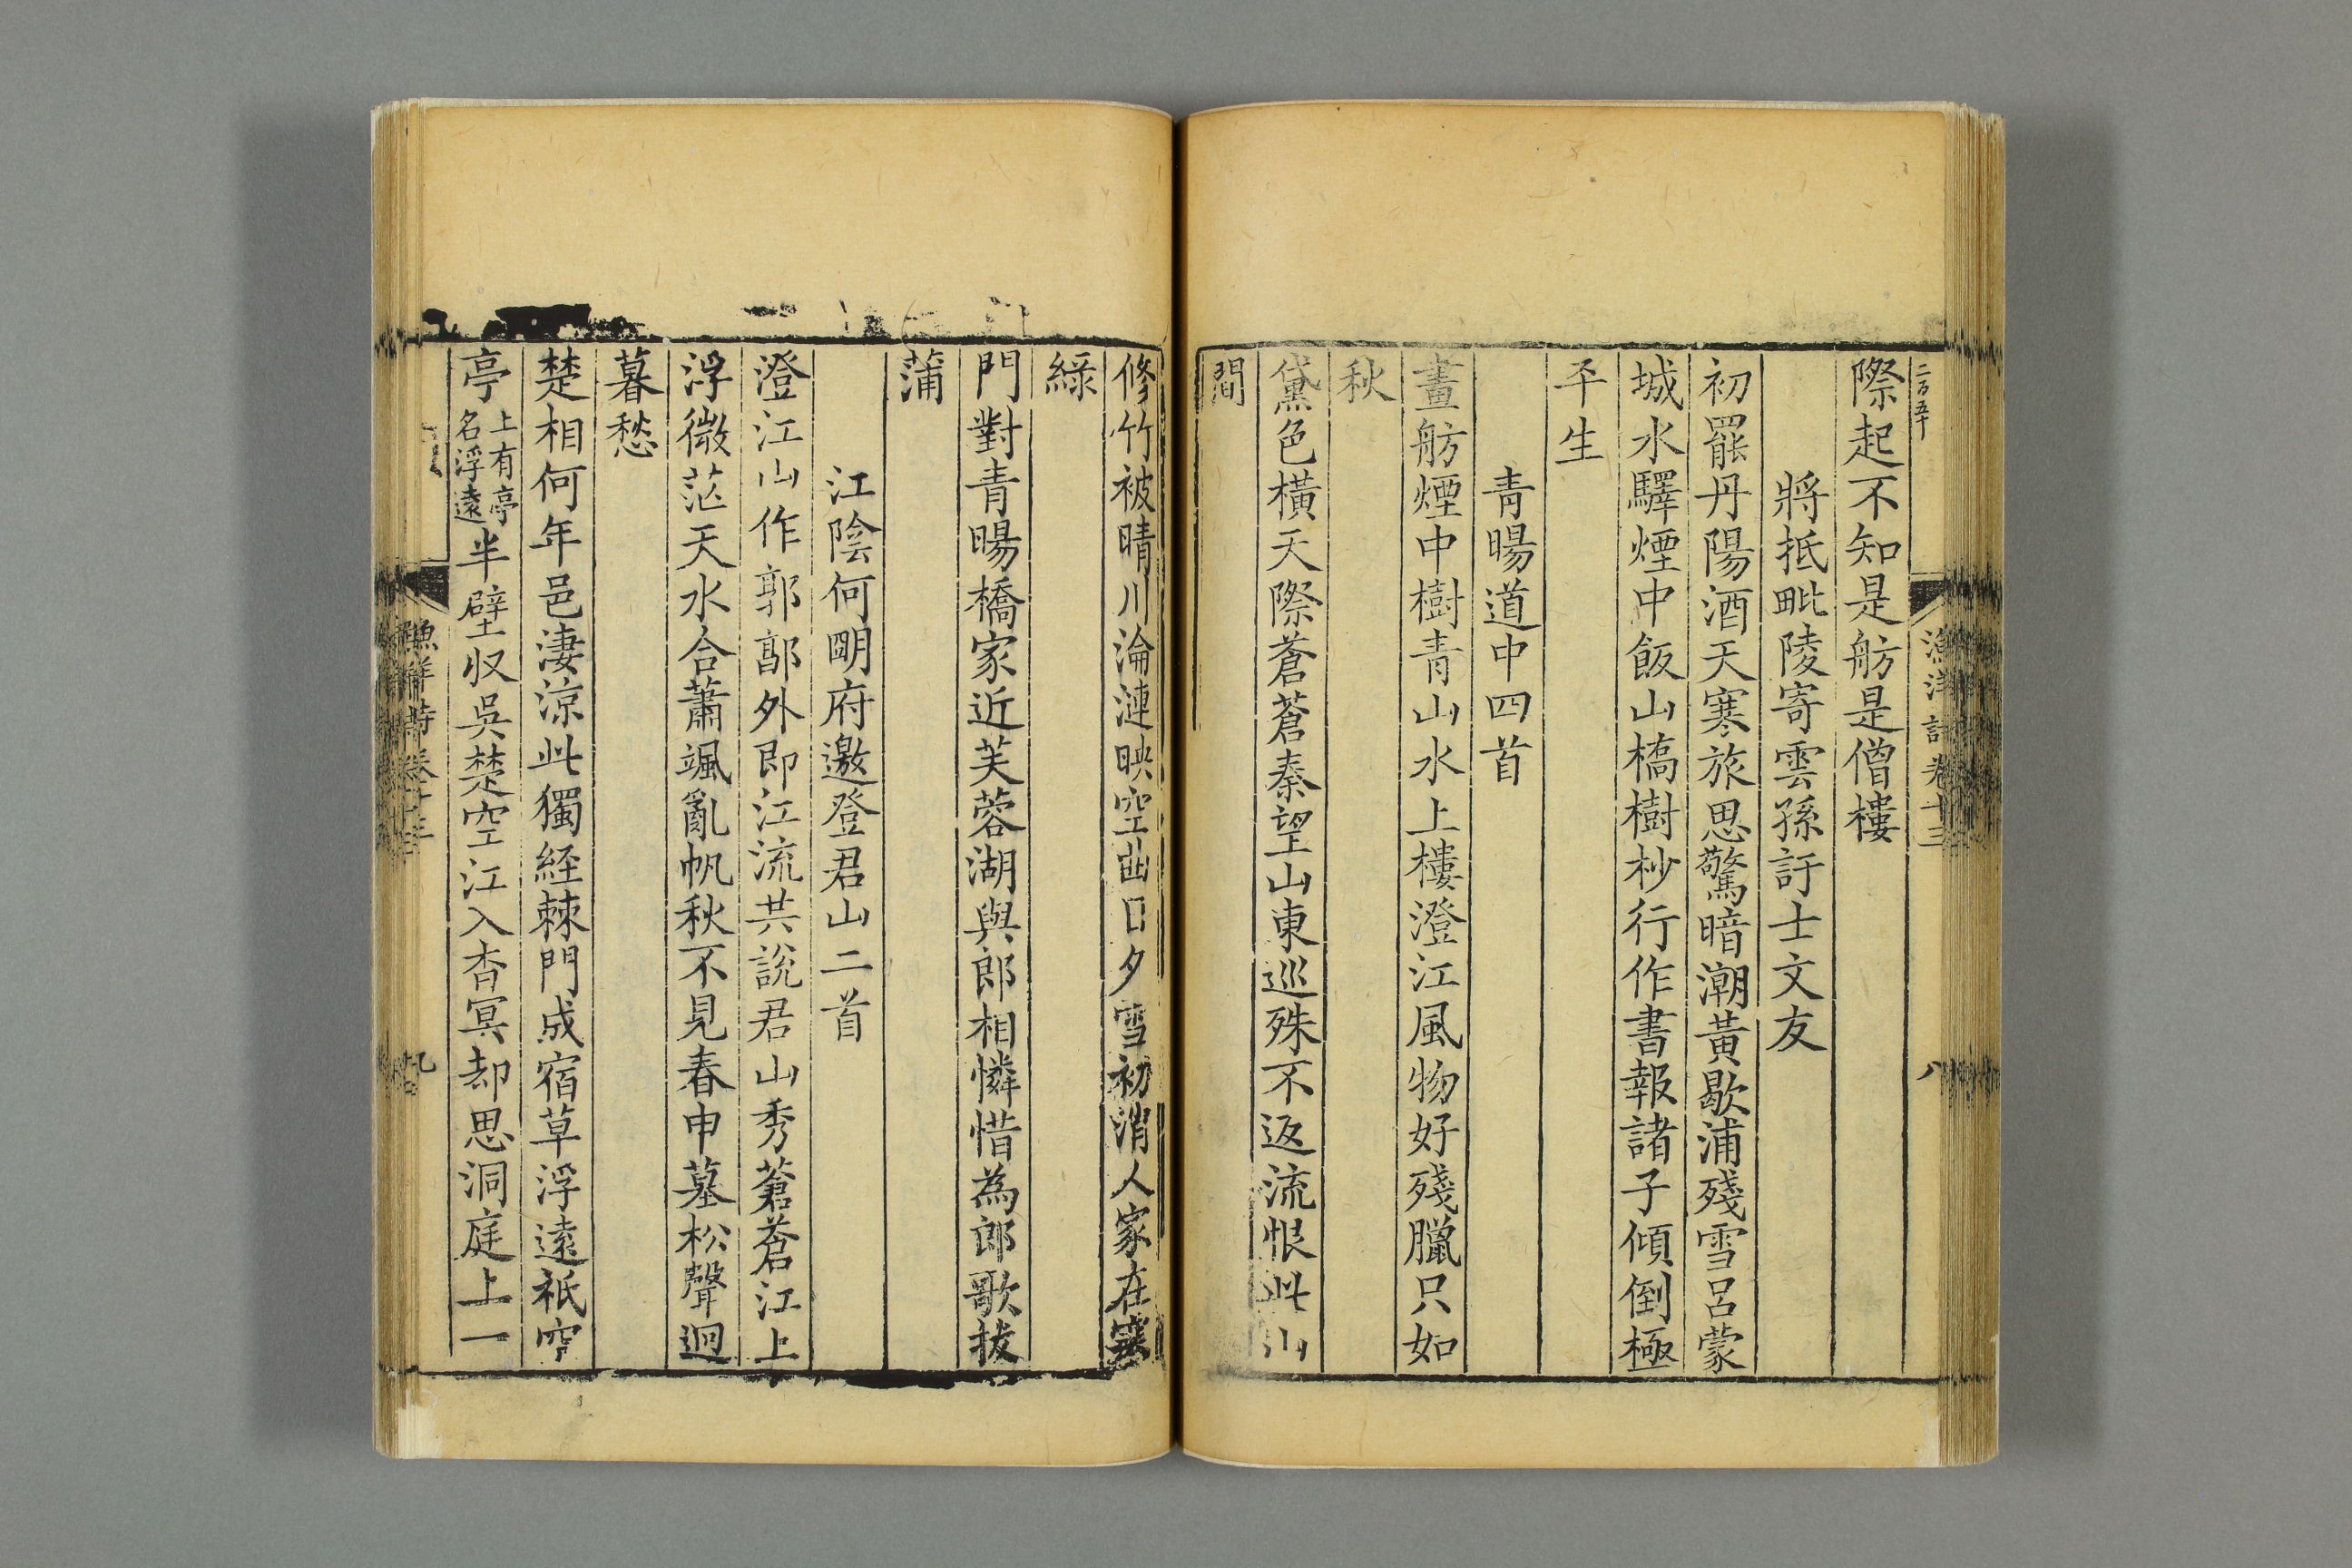 二百五十
漁洋詩卷十三
八
際起不知是舫是僧樓
將抵毗陵寄雲孫訏士文友
初罷丹陽酒天寒旅思驚暗潮黃歇浦殘雪呂蒙
城水驛煙中飯山橋樹杪行作書報諸子傾倒極
平生
青暘道中四首
畫舫煙中樹青山水上樓澄江風物好殘臘只如
秋
黛色橫天際蒼蒼秦望山東巡殊不返流恨此山
間
修竹被晴川淪漣映空曲日夕雪初消人家在寒
綠
門對青暘橋家近芙蓉湖與郎相憐惜為郎歌拔
蒲
江陰何明府邀登君山二首
澄江山作郭郭外即江流共說君山秀蒼蒼江上
浮微茫天水合蕭颯亂帆秋不見春申墓松聲迥
暮愁
楚相何年邑淒涼此獨經棘門成宿草浮遠祇空
亭上有亭名浮遠半壁収吳楚空江入杳冥却思洞庭上一
漁洋詩卷十三
九